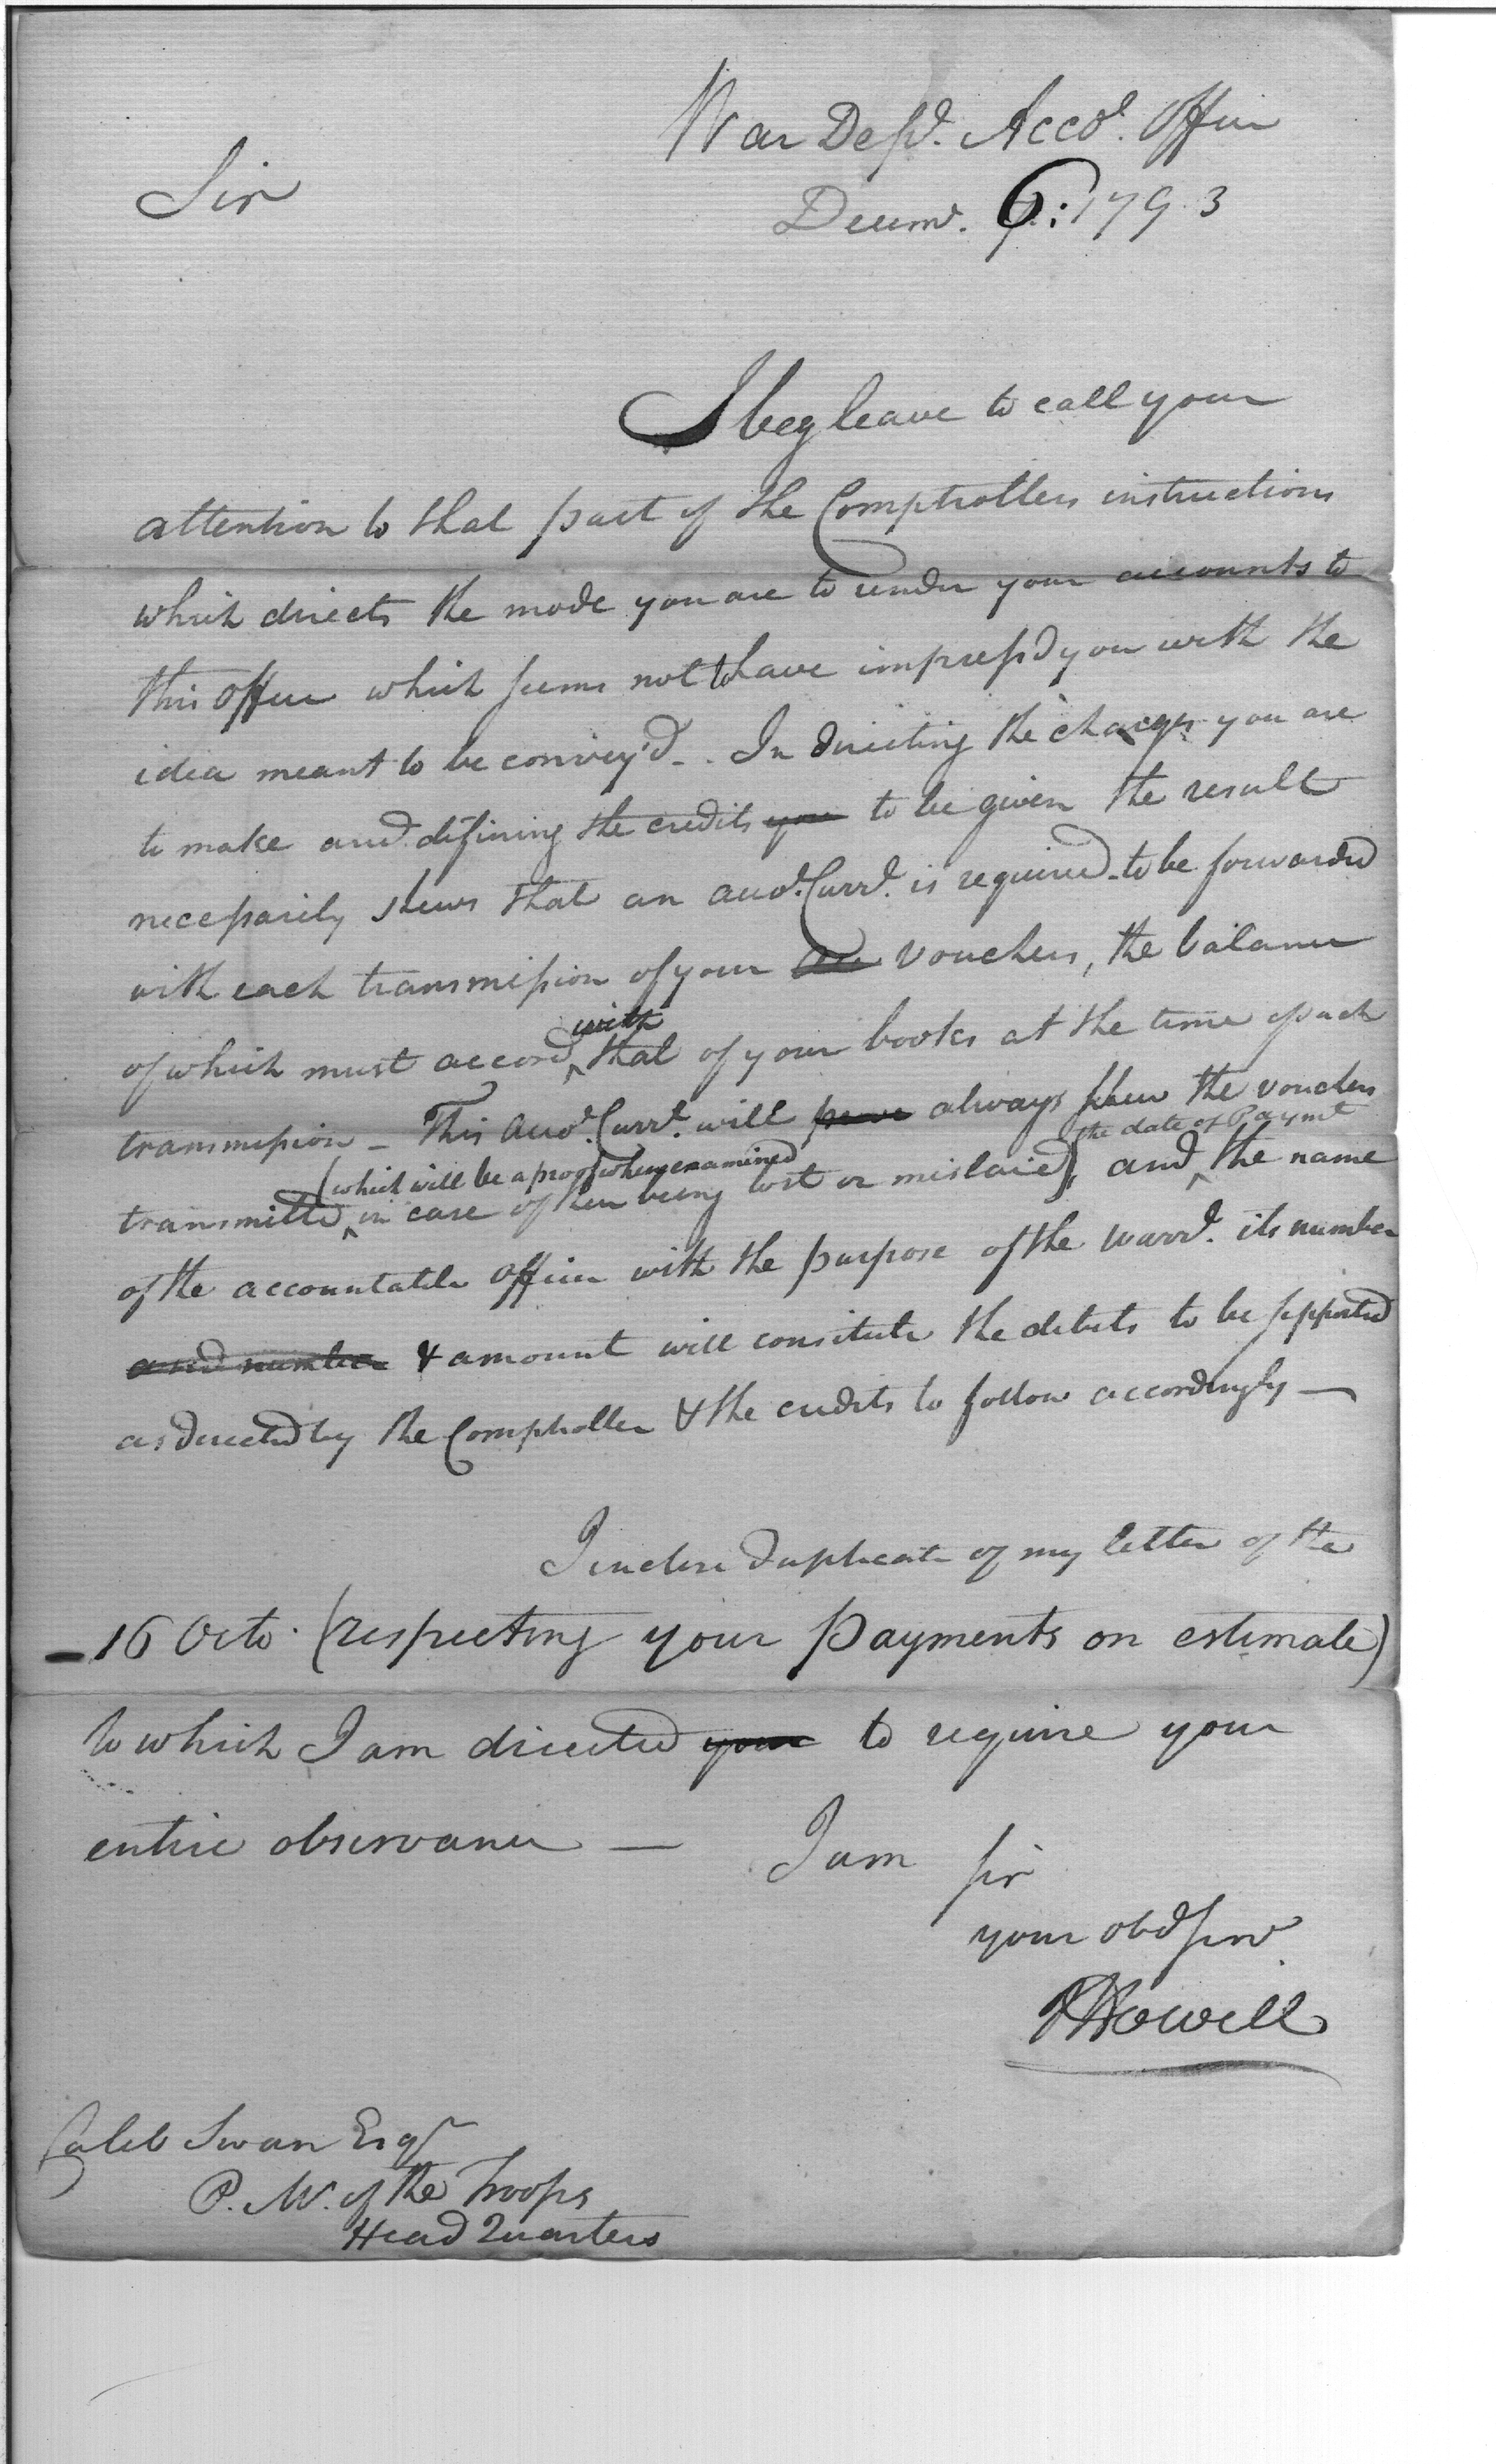 War Dept. Accot. Office
Sir
Decemr. 6: 1793
I beg leave to call your
attention to that part of the Comptrollers instructions
which directs the mode you are to render your accounts to
this Office which seems not to have impress'd you with the
idea meant to be convey'd -. In directing the charges you are
to make and defining the credits you to be given the result
necessarily shews that an accot. Currt. is required to be forwarded
with each transmission of your vouchers, the balance
with
of which must accord ^ that of your books at the time of each
transmission - This accot. Currt. will always shew the vouchers
(which will be a proof when examined
the date of Paymt
transmitted ^ in case of their being lost or mislaied), and ^ the name
of the accountable Officer with the purpose of the warrt. its number
and number & amount will consitute the debits to be supported
as directed by the Comptroller & the credits to follow accordingly —
I inclose duplicate of my letter of the
16 Octo. (respecting your payments on estimate)
to which I am directed your to require your
entire observance — I am Sir
your obd Serv.
J Howell
Caleb Swan Esqr
P. M. of the Troops
Head Quarters